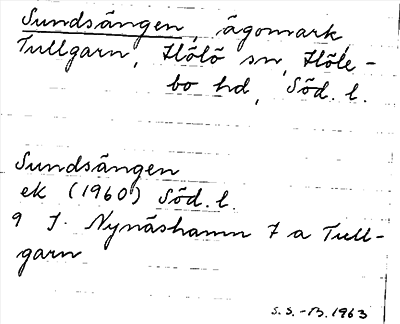 Sundsängen, ägomark,
Tullgarn, Hölö sn, Höle-
bo hd, Söd. l.
Sundsängen
ek (1960) Söd. l.
9 J. Nynäshamn 7 a Tull-
garn
S. S. -B. 1963